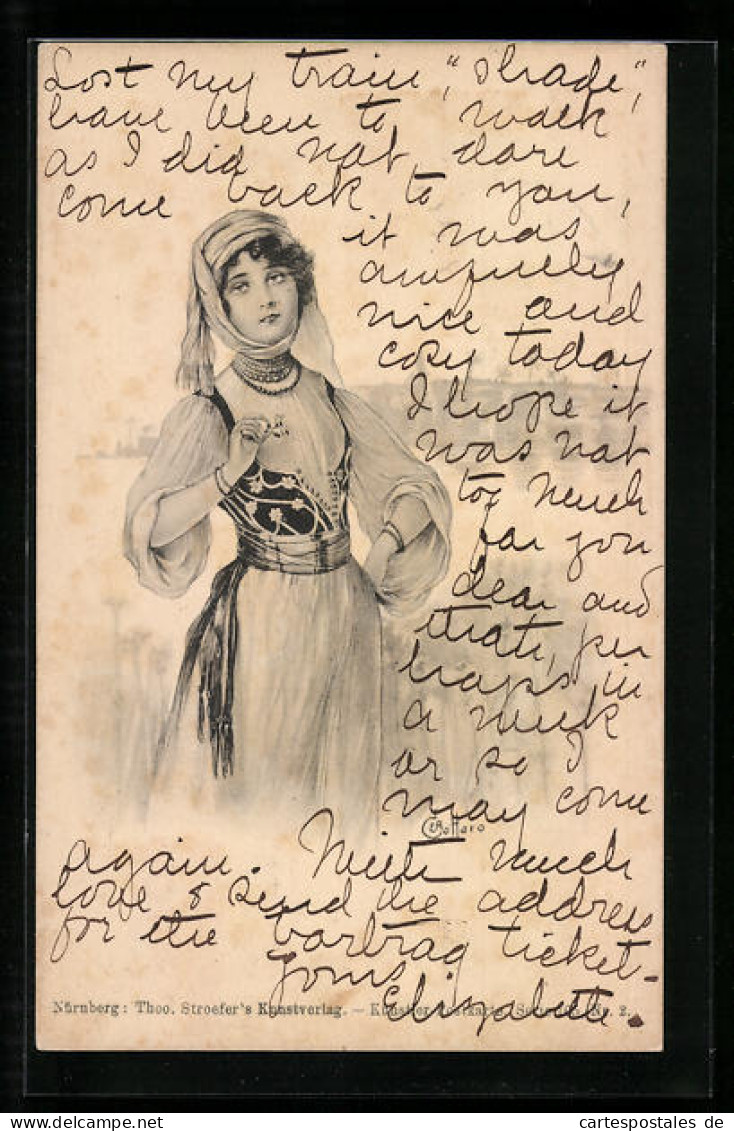 Lost my train, "shade",
have been to walk
as I did not dare
come back to you,
it was
awfully
nice and
cosy today
I hope it
was not
too much
for you
dear and
that, per
haps in
a week
or so I
may come
again. With much
love & send the address
for the Vortrag ticket-
Yours
Elizabeth.
Nürnberg: Theo. Stroefer's Kunstverlag. — Künstler-Postkarte No. 2.
cartespostales de